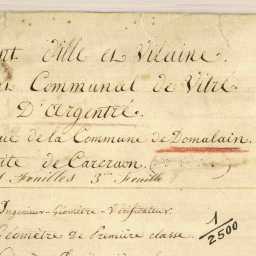 nt Ille et Vilaine.
nt Communal de Vitré
D'Argentré.
de la Commune de Domalain.
ite de Carcraon.
1 Feuilles 3me Feuille
Ingénieur-Géomètre-Vérificateur.
Géomètre de Première classe.
1/2500